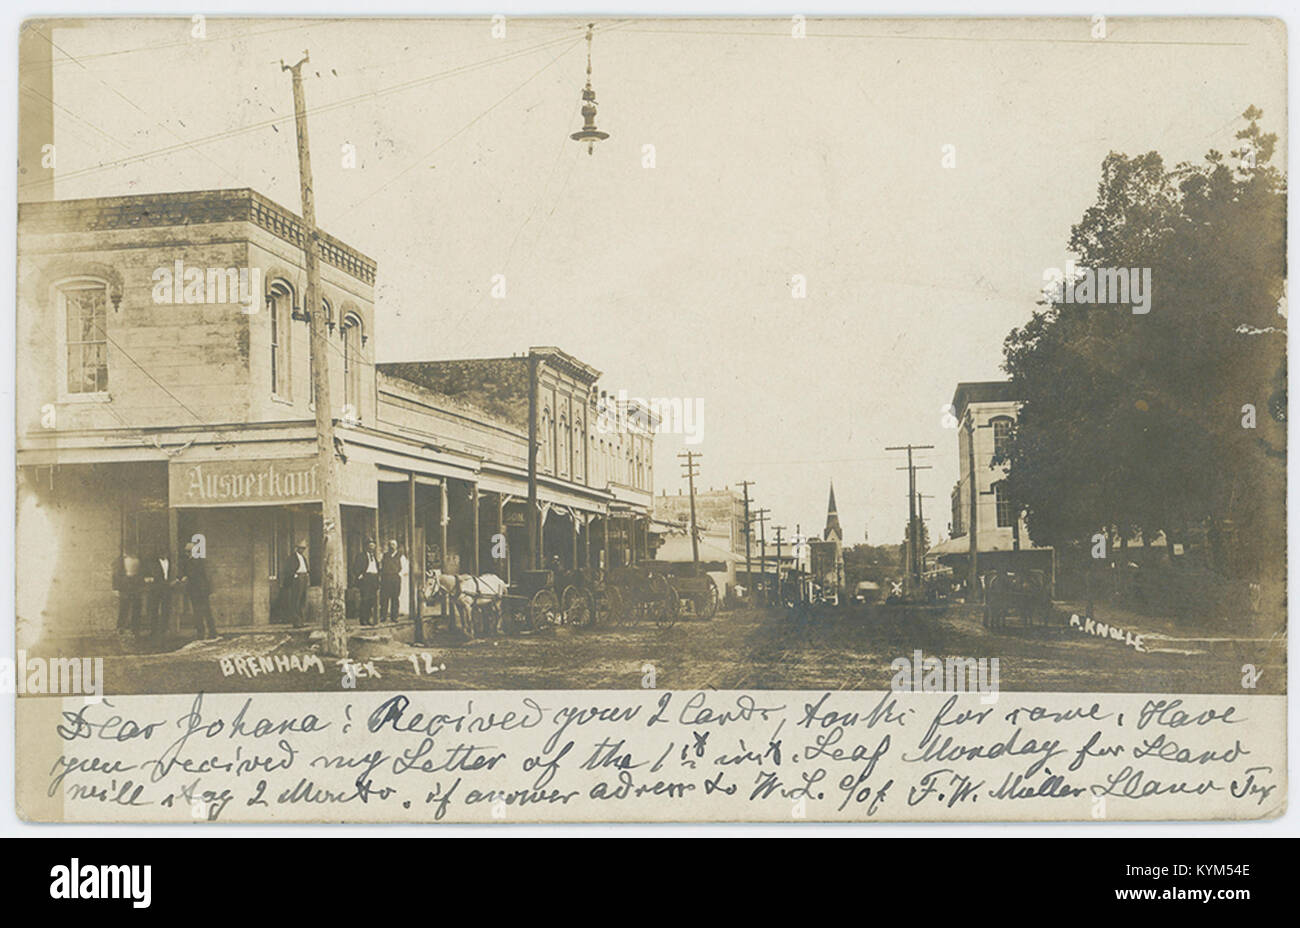 Ausverkauf
BRENHAM TEX 12.
A. KNOLLE
Dear Johana: Recived your 2 Cards, tanks for same. Have
you recived my Letter of the 1st inst. Leaf Monday for Llano
will stay 2 Monts. if answer adress to W. L. c/of F. W. Müller Llano Tex
alamy
Image ID: KYM54E
www.alamy.com